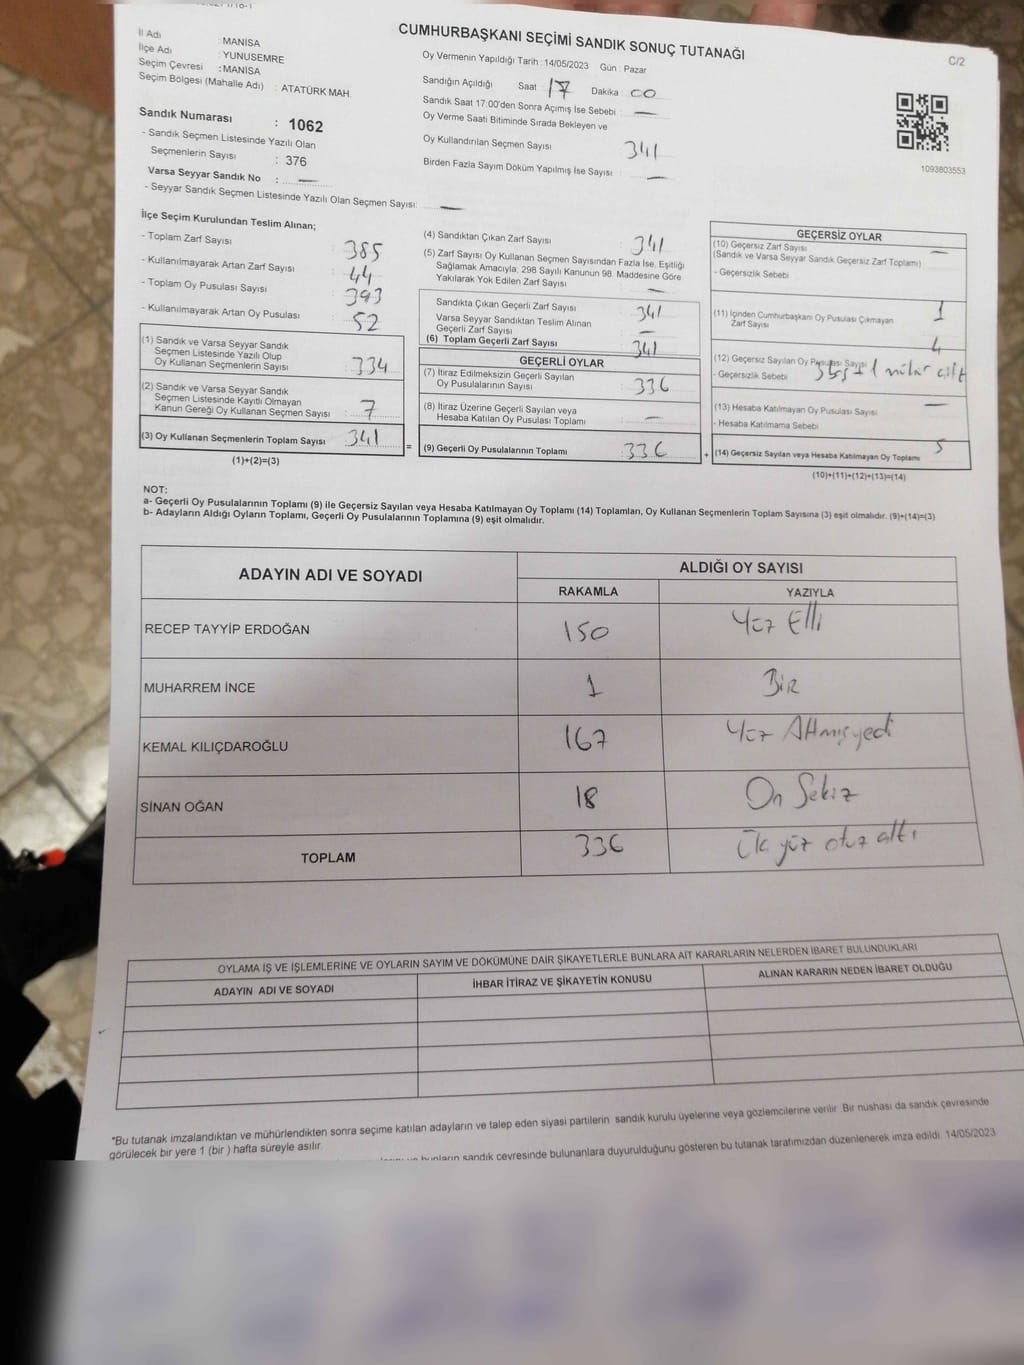 CUMHURBAŞKANI SEÇİMİ SANDIK SONUÇ TUTANAĞI
C/2
İl Adı : MANİSA
İlçe Adı : YUNUSEMRE
Seçim Çevresi : MANİSA
Seçim Bölgesi (Mahalle Adı) : ATATÜRK MAH.
Oy Vermenin Yapıldığı Tarih : 14/05/2023 Gün : Pazar
Sandığın Açıldığı Saat 17 Dakika 00
Sandık Saat 17:00'den Sonra Açımış İse Sebebi : —
Oy Verme Saati Bitiminde Sırada Bekleyen ve
Oy Kullandırılan Seçmen Sayısı : 341
Birden Fazla Sayım Döküm Yapılmış İse Sayısı : —
1093803553
Sandık Numarası : 1062
- Sandık Seçmen Listesinde Yazılı Olan
Seçmenlerin Sayısı : 376
Varsa Seyyar Sandık No : —
- Seyyar Sandık Seçmen Listesinde Yazılı Olan Seçmen Sayısı: —
İlçe Seçim Kurulundan Teslim Alınan;
- Toplam Zarf Sayısı : 385
- Kullanılmayarak Artan Zarf Sayısı : 44
- Toplam Oy Pusulası Sayısı : 393
- Kullanılmayarak Artan Oy Pusulası : 52
(1) Sandık ve Varsa Seyyar Sandık
Seçmen Listesinde Yazılı Olup
Oy Kullanan Seçmenlerin Sayısı : 334
(2) Sandık ve Varsa Seyyar Sandık
Seçmen Listesinde Kayıtlı Olmayan
Kanun Gereği Oy Kullanan Seçmen Sayısı : 7
(3) Oy Kullanan Seçmenlerin Toplam Sayısı : 341
(1)+(2)=(3)
=
(4) Sandıktan Çıkan Zarf Sayısı : 341
(5) Zarf Sayısı Oy Kullanan Seçmen Sayısından Fazla İse, Eşitliği
Sağlamak Amacıyla, 298 Sayılı Kanunun 98. Maddesine Göre
Yakılarak Yok Edilen Zarf Sayısı : —
Sandıkta Çıkan Geçerli Zarf Sayısı : 341
Varsa Seyyar Sandıktan Teslim Alınan
Geçerli Zarf Sayısı : —
(6) Toplam Geçerli Zarf Sayısı : 341
GEÇERLİ OYLAR
(7) İtiraz Edilmeksizin Geçerli Sayılan
Oy Pusulalarının Sayısı : 336
(8) İtiraz Üzerine Geçerli Sayılan veya
Hesaba Katılan Oy Pusulası Toplamı : —
(9) Geçerli Oy Pusulalarının Toplamı : 336
+
GEÇERSİZ OYLAR
(10) Geçersiz Zarf Sayısı —
(Sandık ve Varsa Seyyar Sandık Geçersiz Zarf Toplamı)
- Geçersizlik Sebebi
(11) İçinden Cumhurbaşkanı Oy Pusulası Çıkmayan
Zarf Sayısı 1
(12) Geçersiz Sayılan Oy Pusulası Sayısı 4
- Geçersizlik Sebebi 3 boş 1 mühür çift
(13) Hesaba Katılmayan Oy Pusulası Sayısı —
- Hesaba Katılmama Sebebi
(14) Geçersiz Sayılan veya Hesaba Katılmayan Oy Toplamı 5
(10)+(11)+(12)+(13)=(14)
NOT:
a- Geçerli Oy Pusulalarının Toplamı (9) ile Geçersiz Sayılan veya Hesaba Katılmayan Oy Toplamı (14) Toplamları, Oy Kullanan Seçmenlerin Toplam Sayısına (3) eşit olmalıdır. (9)+(14)=(3)
b- Adayların Aldığı Oyların Toplamı, Geçerli Oy Pusulalarının Toplamına (9) eşit olmalıdır.
ADAYIN ADI VE SOYADI
ALDIĞI OY SAYISI
RAKAMLA YAZIYLA
RECEP TAYYİP ERDOĞAN 150 Yüz Elli
MUHARREM İNCE 1 Bir
KEMAL KILIÇDAROĞLU 167 Yüz Altmışyedi
SİNAN OĞAN 18 On Sekiz
TOPLAM 336 Üç yüz otuz altı
OYLAMA İŞ VE İŞLEMLERİNE VE OYLARIN SAYIM VE DÖKÜMÜNE DAİR ŞİKAYETLERLE BUNLARA AİT KARARLARIN NELERDEN İBARET BULUNDUKLARI
ADAYIN ADI VE SOYADI İHBAR İTİRAZ VE ŞİKAYETİN KONUSU ALINAN KARARIN NEDEN İBARET OLDUĞU
*Bu tutanak imzalandıktan ve mühürlendikten sonra seçime katılan adayların ve talep eden siyasi partilerin sandık kurulu üyelerine veya gözlemcilerine verilir. Bir nushası da sandık çevresinde
görülecek bir yere 1 (bir ) hafta süreyle asılır.
bunların sandık çevresinde bulunanlara duyurulduğunu gösteren bu tutanak tarafımızdan düzenlenerek imza edildi. 14/05/2023